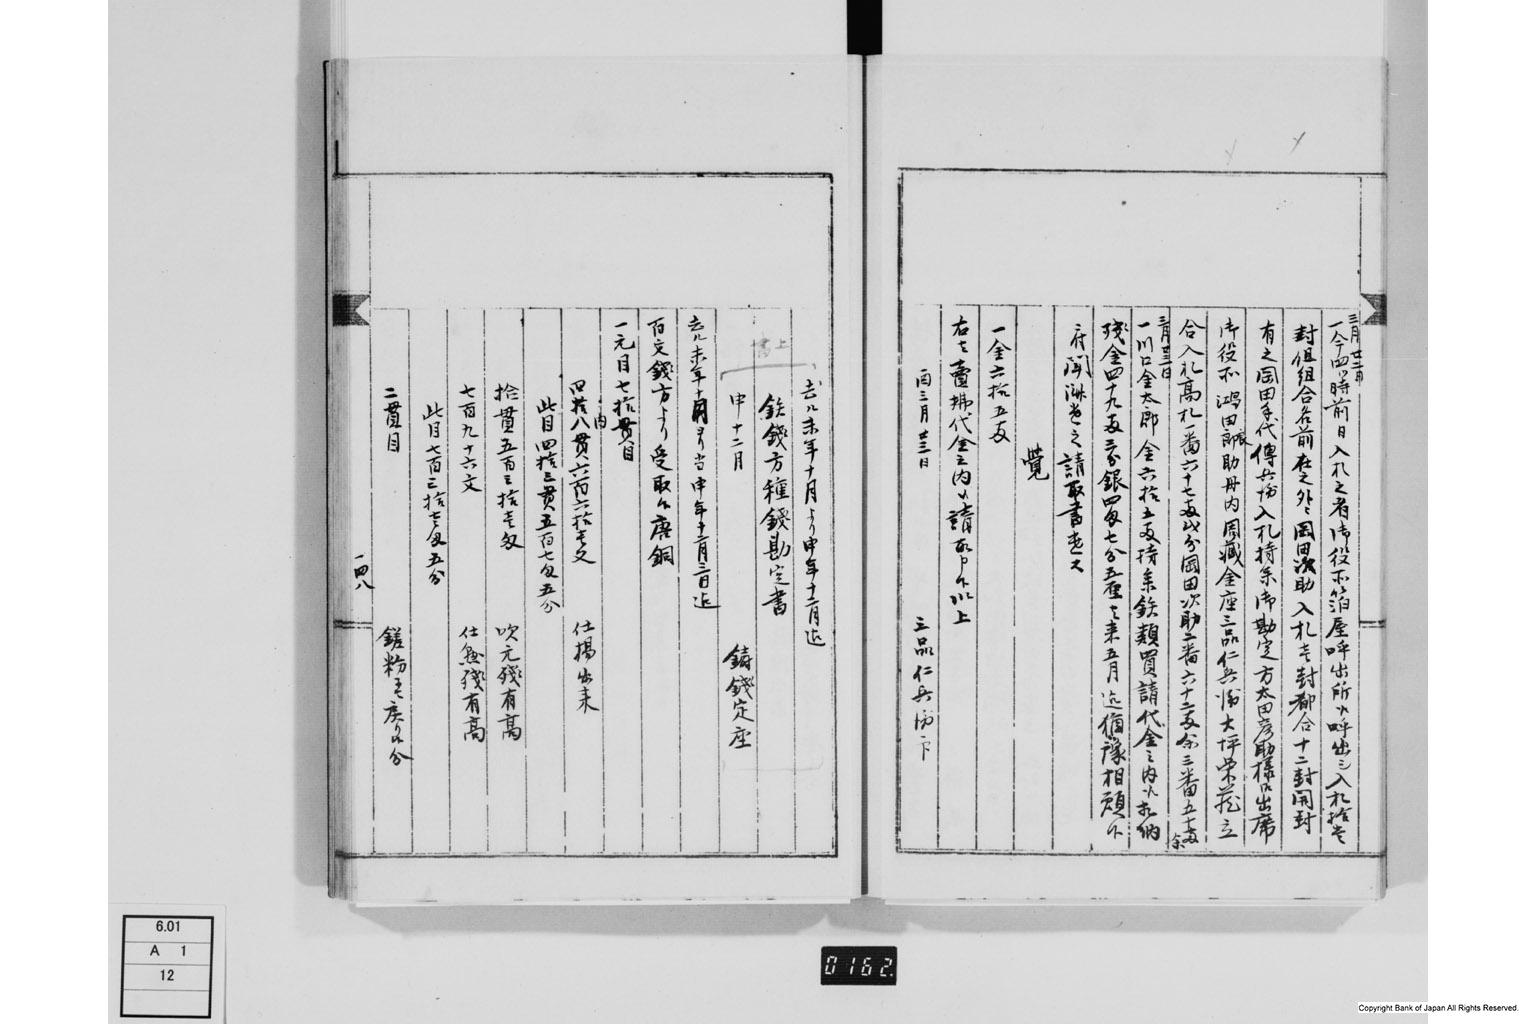 三月廿二日
一今四時前日入札之者御役所箔屋呼出所ゟ呼出シ入札拾壱
封但組合名前在之外ニ岡田次助入札壱封都合十二封開封
有之岡田手代傳兵衛入札持参御勘定方太田彦助様御出席
御役所鴻田郎助丹内周蔵金座三品仁兵衛大坪栄蔵立
合入札高札一番六十七両弐分岡田次助二番六十二両余三番五十両余
三月廿三日
一川口金太郎金六拾五両持参鉄類買請代金之内ゟ相納
残金四十九両三分銀四匁七分五厘者来五月迄猶豫相願候
府聞済遣之請取書遣ス
覚
一金六拾五両
右者賣拂代金之内ゟ請取申候以上
酉三月廿三日 三品仁兵衛印
上書
去ル未年十月ゟ申年十二月迄
鉄錢方種錢勘定書
申十二月 鋳錢定座
去ル未年十月ゟ当申年十二月三日迄
百文錢方ゟ受取候唐銅
一元目七拾貫目
内
四拾八貫六百六拾壱文 仕揚出来
此目四拾三貫五百七匁五分
拾貫五百三拾壱匁 吹元錢有高
七百九十六文 仕懸錢有高
此目七百三拾壱匁五分
二貫目 鑢粉ニ而戻り候分
一四八
6.01
A 1
12
0162.
Copyright Bank of Japan All Rights Reserved.